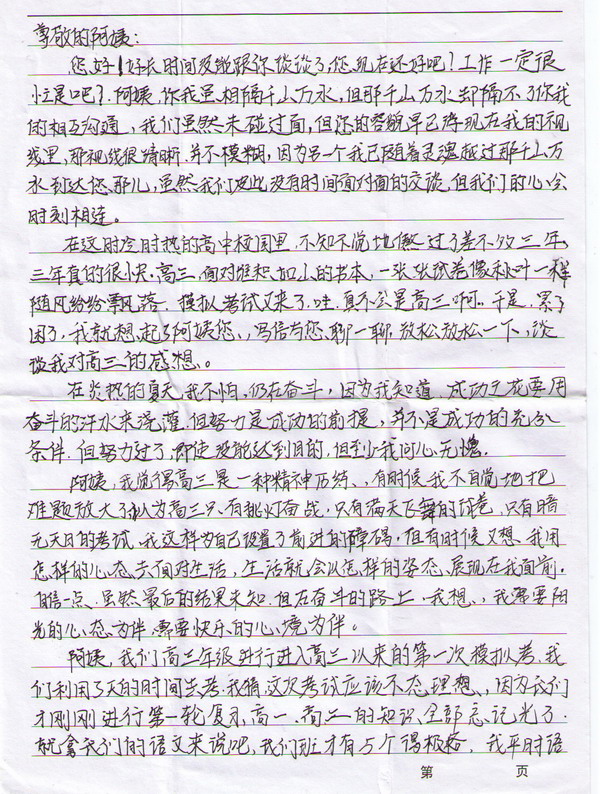 尊敬的阿姨：
您好！好长时间没能跟你谈谈了，您现在还好吧？工作一定很
忙是吧？阿姨，你我虽相隔千山万水，但那千山万水却隔不了你我
的相互沟通，我们虽然未碰过面，但你的容貌早已浮现在我的视
线里，那视线很清晰，并不模糊，因为另一个我已随着灵魂越过那千山万
水到达您那儿，虽然我们彼此没有时间面对面的交谈，但我们的心会
时刻相连。
在这时冷时热的高中校园里，不知不觉地熬过了差不多三年，
三年真的很快，高三，面对堆积如山的书本，一张张试卷像秋叶一样
随风纷纷飘落，模拟考试又来了，哇，真不会是高三啊。于是，累了
困了，我就想起了阿姨您，写信与您聊一聊，放松放松一下，谈
谈我对高三的感想。
在炎热的夏天，我不怕，仍在奋斗，因为我知道，成功之花要用
奋斗的汗水来浇灌，但努力是成功的前提，并不是成功的充分
条件，但努力过了，即使没能达到目的，但至少我问心无愧。
阿姨，我觉得高三是一种精神历练，有时候我不自觉地把
难题放大了，认为高三只有挑灯奋战，只有满天飞舞的试卷，只有暗
无天日的考试，我这样为自己设置了前进的障碍，但有时候又想，我用
怎样的心态去面对生活，生活就会以怎样的姿态展现在我面前，
自信一点，虽然最后的结果未知，但在奋斗的路上，我想，我需要阳
光的心态为伴，需要快乐的心境为伴。
阿姨，我们高三年级进行进入高三以来的第一次模拟考，我
们利用了天的时间去考，我猜这次考试应该不太理想，因为我们
才刚刚进行第一轮复习，高一、高二的知识全部忘记光了，
就拿我们的语文来说吧，我们班才有5个得极格，我平时语
第 页